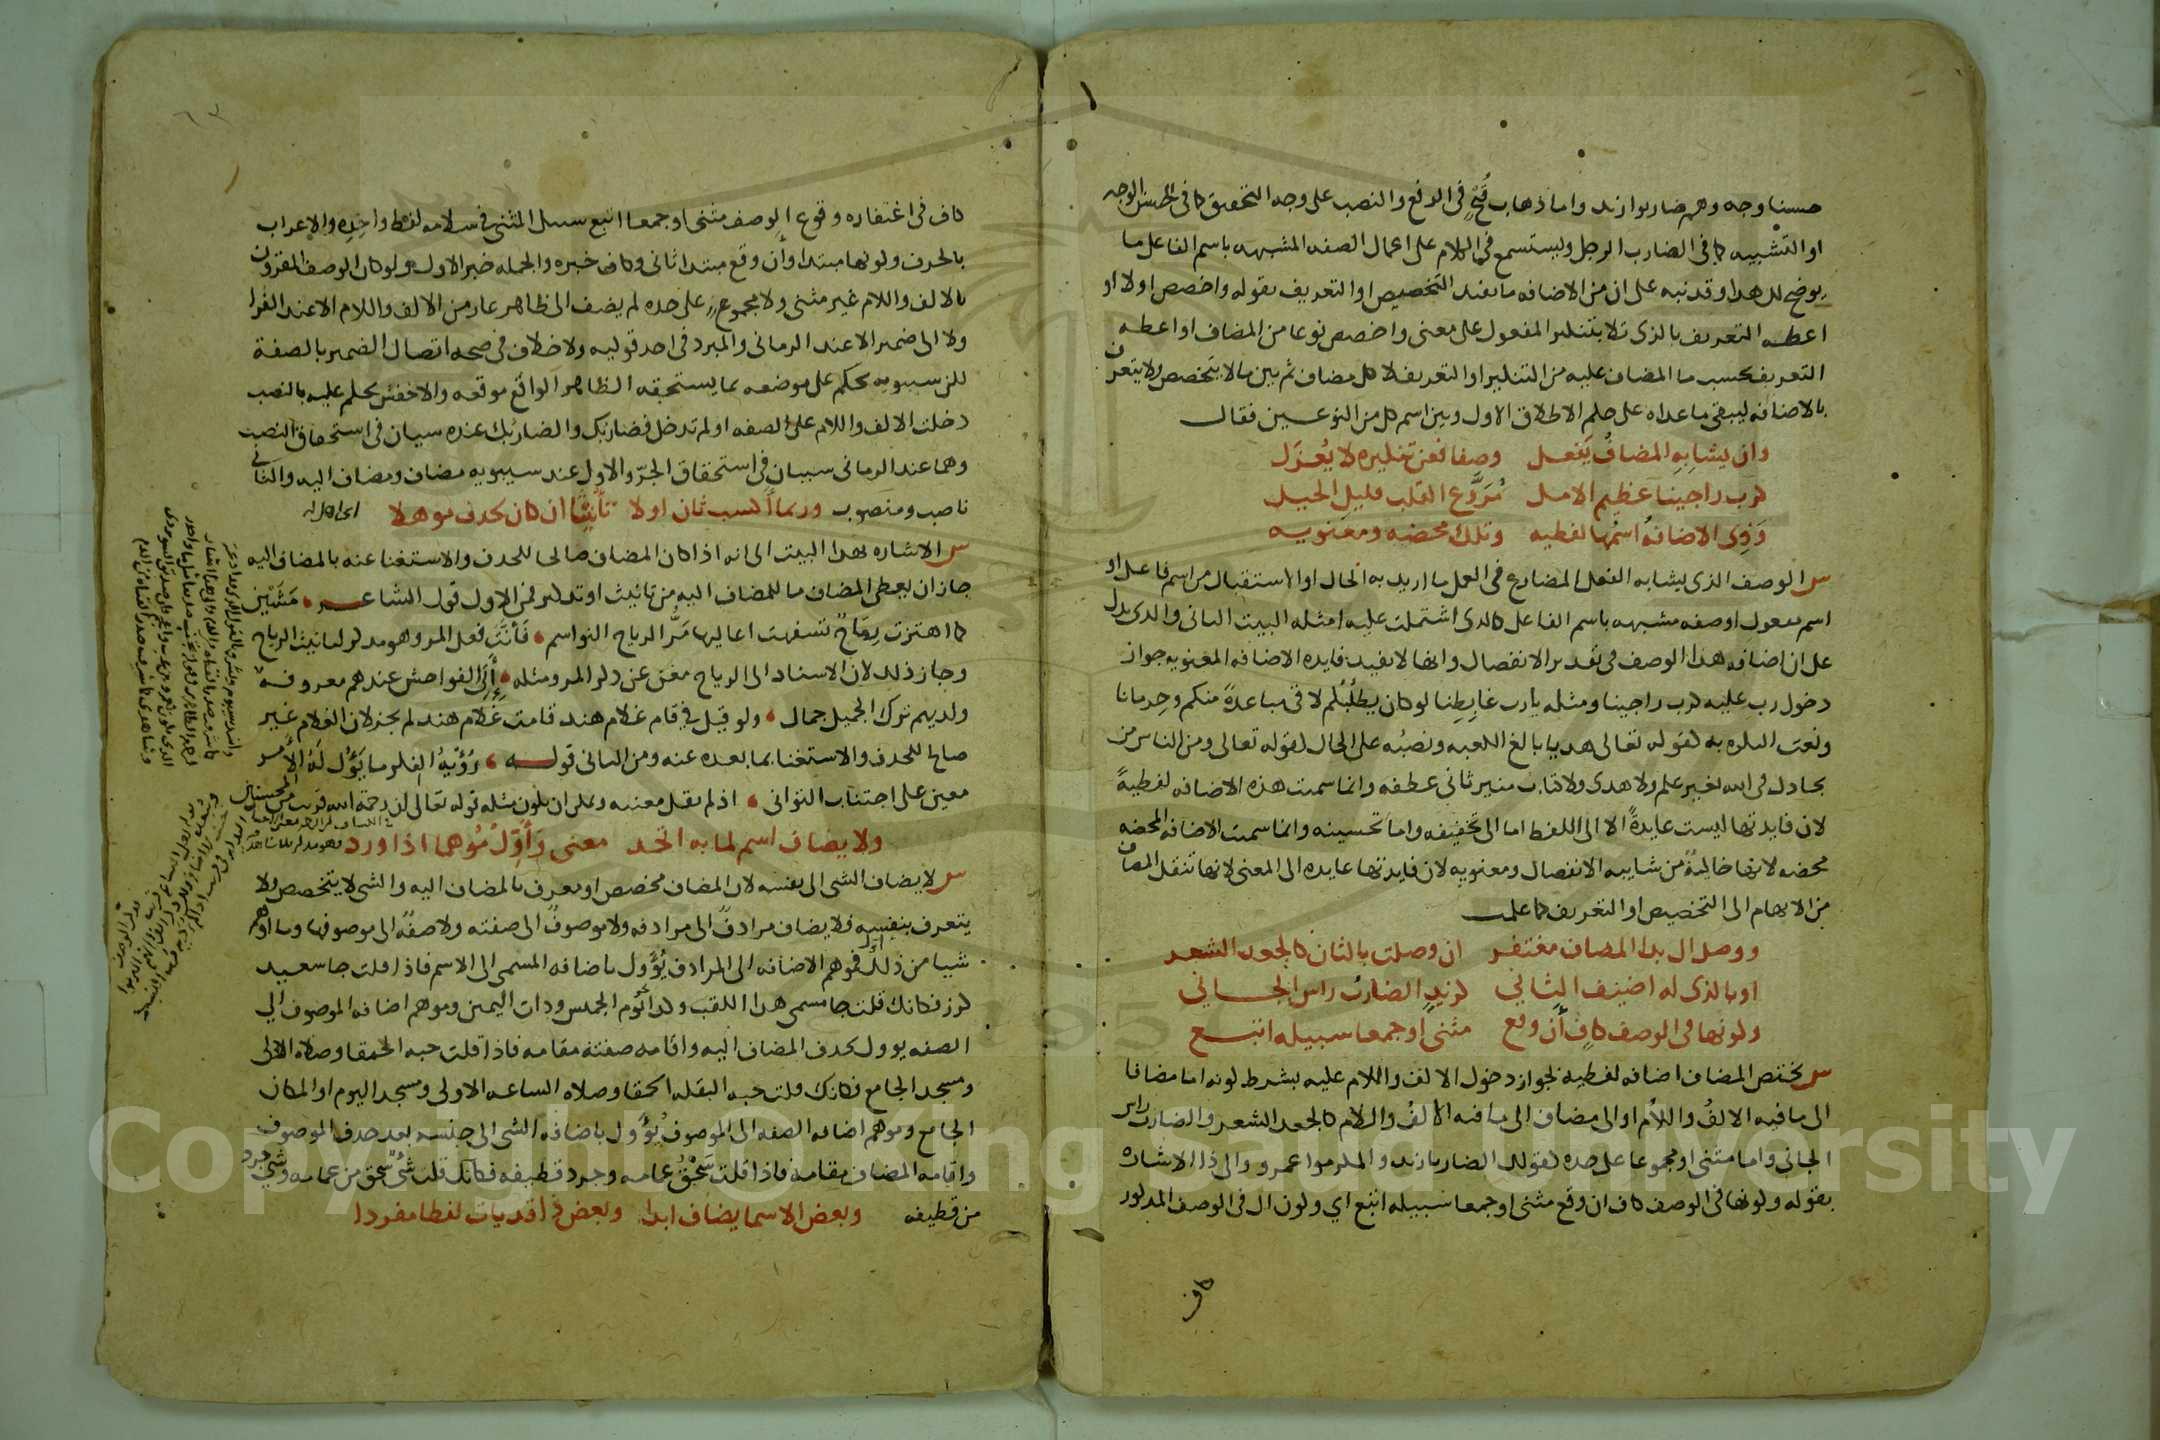 حسنا وجه وهم ضاربوا زيد واما ذهاب قبح في الرفع والنصب على وجه التحقيق كما في الحسن الوجه
او التشبيه كما في الضارب الرجل وليستسمع في الكلام على اعمال الصفه المشبهه باسم الفاعل ما
يوضح لك هذا وقد نبه على ان من الاضافه ما يفيد التخصيص او التعريف بقوله واخصص اولا او
اعطه التعريف بالذي تلا بتنكير المفعول على معنى واخصص نوعا من المضاف او اعطه
التعريف بحسب ما المضاف عليه من التنكير او التعريف لا كل مضاف ثم بين ما لا يتخصص ولا يتعرف
بالاضافه ليبقى ما عداه على حكم الاطلاق الاول وبين اسم كل من النوعين فقال
وان يشابه المضاف يفعل وصفا فعن تنكيره لا يعزل
كرب راجينا عظيم الامل مروع القلب قليل الحيل
وذي الاضافه اسمها لفظيه وتلك محضه ومعنويه
س الوصف الذي يشابه الفعل المضارع في العمل ما اريد به الحال او الاستقبال من اسم فاعل او
اسم مفعول او صفه مشبهه باسم الفاعل كالذي اشتملت عليه امثله البيت الثاني والذي يدل
على ان اضافه هذا الوصف في تقدير الانفصال وانها لا تفيد فايده الاضافه المعنويه جواز
دخول رب عليه كرب راجينا ومثله يا رب غابطنا لو كان يطلبكم لاقى مباعدة منكم وحرمانا
ونعت النكره به كقوله تعالى هديا بالغ الكعبه ونصبه على الحال كقوله تعالى ومن الناس من
يجادل في الله بغير علم ولا هدى ولا كتاب منير ثاني عطفه وانما سميت هذه الاضافه لفظية
لان فايدتها ليست عايدة الا الى اللفظ اما الى تخفيفه واما تحسينه وانما سميت الاضافه المحضه
محضه لانها خالصة من شايبه الانفصال ومعنويه لان فايدتها عايده الى المعنى لانها تنقل المضاف
من الابهام الى التخصيص او التعريف كما علمت
ووصل ال بذا المضاف مغتفر ان وصلت بالثان كالجعد الشعر
او بالذي له اضيف الثاني كزيد الضارب راس الجاني
وكونها في الوصف كاف أن وقع مثنى او جمعا سبيله اتبع
س يختص المضاف اضافه لفظيه بجواز دخول الالف واللام عليه بشرط كونه اما مضافا
الى ما فيه الالف واللام او الى مضاف الى ما فيه الالف واللام كالجعد الشعر والضارب راس
الجاني واما مثنى او مجموعا على حده كقولك الضاربا زيد والمكرموا عمرو والى ذا الاشاره
بقوله وكونها في الوصف كاف ان وقع مثنى او جمعا سبيله اتبع اي وكون ال في الوصف المذكور
كاف
كاف في اغتفاره وقوع الوصف مثنى او جمعا اتبع سبيل المثنى في سلامه لفظ واحده والاعراب
بالحرف وكونها مبتدا وأن وقع مبتدا ثاني وكاف خبره والجمله خبر الاول ولو كان الوصف المقرون
بالالف واللام غير مثنى ولا مجموع على حده لم يضف الى ظاهر عار من الالف واللام الا عند الفرا
ولا الى ضمير الا عند الرماني والمبرد في احد قوليه ولا خلاف في صحه اتصال الضمير بالصفة
لكن سيبويه يحكم على موضعه بما يستحقه الظاهر الواقع موقعه والاخفش يحكم عليه بالنصب
دخلت الالف واللام على الصفه او لم تدخل فضاربك والضاربك عنده سيان في استحقاق النصب
وهما عند الرماني سيان في استحقاق الجر والاول عند سيبويه مضاف ومضاف اليه والثاني
ناصب ومنصوب وربما أكسب ثان اولا تأنيثا ان كان لحذف موهلا
س الاشاره بهذا البيت الى انه اذا كان المضاف صالحا للحذف والاستغنا عنه بالمضاف اليه
جاز ان يعطى المضاف ما للمضاف اليه من تانيث او تذكير فمن الاول قول الشاعر مشين
كما اهتزت رماح تسفهت اعاليها مر الرياح النواسم فأنث فعل المر وهو مذكر لتانيث الرياح
وجاز ذلك لان الاسناد الى الرياح مغن عن ذكر المر ومثله أتي الفواحش عندهم معروفة
ولديهم ترك الجميل جمال ولو قيل في قام غلام هند قامت غلام هند لم يجز لان الغلام غير
صالح للحذف والاستغنا بما بعده عنه ومن الثاني قوله رؤية الفكر ما يؤل له الأمر
معين على اجتناب التواني اذ لم يقل معينه ويمكن ان يكون مثله قوله تعالى ان رحمة الله قريب من المحسنين
ولا يضاف اسم لما به اتحد معنى وأول موهما اذا ورد
س لا يضاف الشي الى نفسه لان المضاف مخصص او معرف بالمضاف اليه والشي لا يتخصص ولا
يتعرف بنفسه فلا يضاف مرادف الى مرادفه ولا موصوف الى صفته ولا صفة الى موصوفها وما اوهم
شيا من ذلك أول فموهم الاضافه الى المرادف يؤول باضافه المسمى الى الاسم فاذا قلت جا سعيد
كرز فكانك قلت جا مسمى هذا اللقب وكذا يوم الخميس وذات اليمين وموهم اضافه الموصوف الى
الصفه يوول بحذف المضاف اليه واقامه صفته مقامه فاذا قلت حبه الحمقا وصلاه الاولى
ومسجد الجامع فكانك قلت حبه البقله الحمقا وصلاه الساعه الاولى ومسجد اليوم او المكان
الجامع وموهم اضافه الصفه الى الموصوف يؤول باضافه الشي الى جنسه بعد حذف الموصوف
واقامه المضاف مقامه فاذا قلت سحق عمامه وجرد قطيفه فكانك قلت شي سحق من عمامه وشي جرد
من قطيفه وبعض الاسما يضاف ابدا وبعض ذا قد يات لفظا مفردا
Copyright © King Saud University